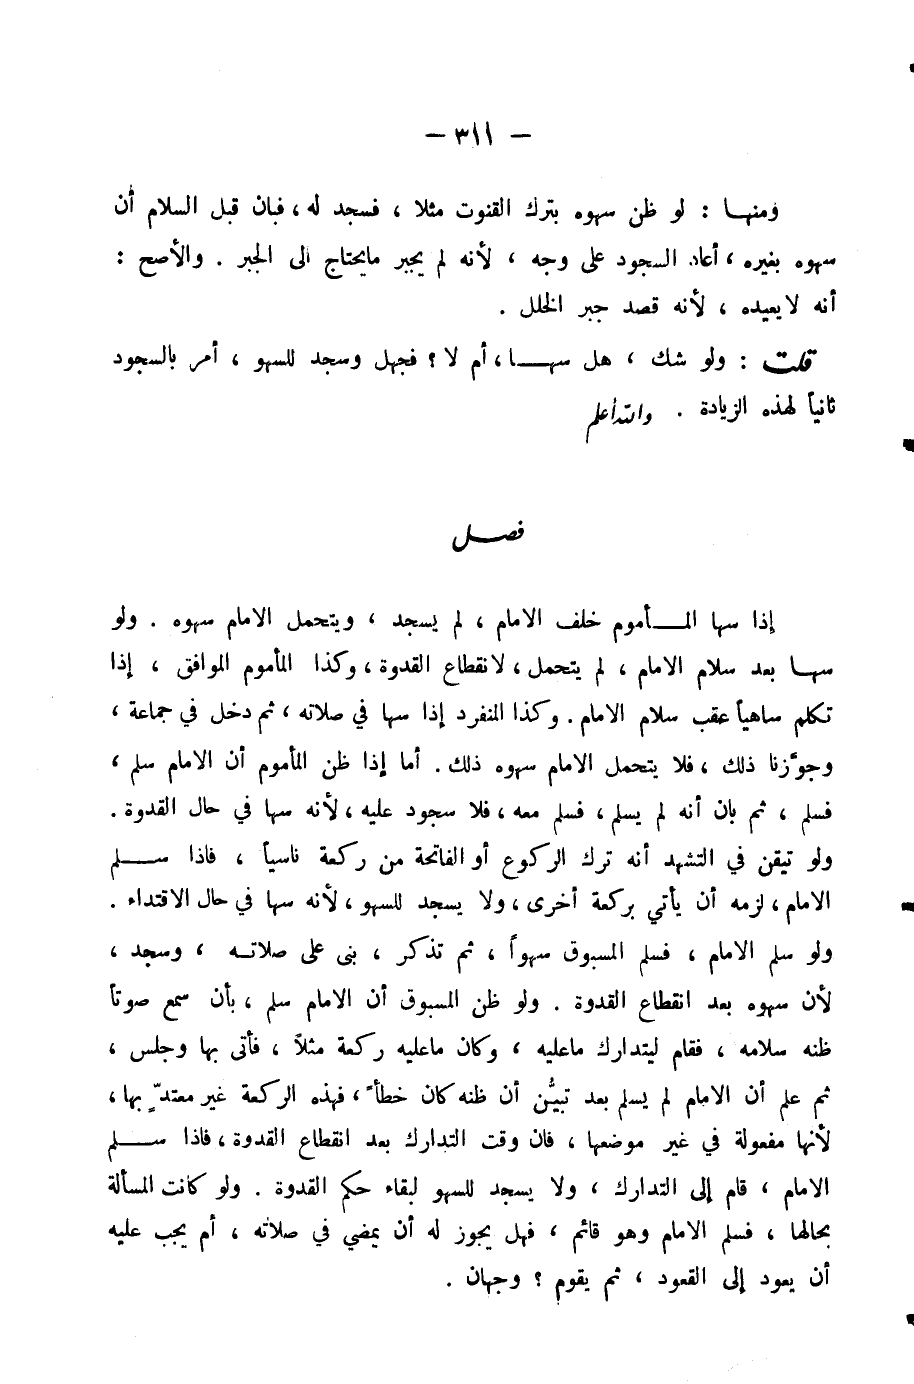 — ٣١١ —
ومنهـا : لو ظن سهوه بترك القنوت مثلا ، فسجد له ، فبان قبل السلام أن
سهوه بغيره ، أعاد السجود على وجه ، لأنه لم يجبر مايحتاج الى الجبر . والأصح :
أنه لايعيده ، لأنه قصد جبر الخلل .
قلت : ولو شك ، هل سهـا ، أم لا ؟ فجهل وسجد للسهو ، أمر بالسجود
ثانياً لهذه الزيادة . والله أعلم
فصـل
إذا سها المـأموم خلف الامام ، لم يسجد ، ويتحمل الامام سهوه . ولو
سهـا بعد سلام الامام ، لم يتحمل ، لانقطاع القدوة ، وكذا المأموم الموافق ، إذا
تكلم ساهياً عقب سلام الامام . وكذا المنفرد إذا سها في صلاته ، ثم دخل في جماعة ،
وجوَّزنا ذلك ، فلا يتحمل الامام سهوه ذلك . أما إذا ظن المأموم أن الامام سلم ،
فسلم ، ثم بان أنه لم يسلم ، فسلم معه ، فلا سجود عليه ، لأنه سها في حال القدوة .
ولو تيقن في التشهد أنه ترك الركوع أو الفاتحة من ركعة ناسياً ، فاذا سـلم
الامام ، لزمه أن يأتي بركعة أخرى ، ولا يسجد للسهو ، لأنه سها في حال الاقتداء .
ولو سلم الامام ، فسلم المسبوق سهواً ، ثم تذكر ، بنى على صلاتـه ، وسجد ،
لأن سهوه بعد انقطاع القدوة . ولو ظن المسبوق أن الامام سلم ، بأن سمع صوتاً
ظنه سلامه ، فقام ليتدارك ماعليه ، وكان ماعليه ركعة مثلاً ، فأتى بها وجلس ،
ثم علم أن الامام لم يسلم بعد تبيُّن أن ظنه كان خطأً ، فهذه الركعة غير معتدٍّ بها ،
لأنها مفعولة في غير موضعها ، فان وقت التدارك بعد انقطاع القدوة ، فاذا سـلم
الامام ، قام إلى التدارك ، ولا يسجد للسهو لبقاء حكم القدوة . ولو كانت المسألة
بحالها ، فسلم الامام وهو قائم ، فهل يجوز له أن يمضي في صلاته ، أم يجب عليه
أن يعود إلى القعود ، ثم يقوم ؟ وجهان .